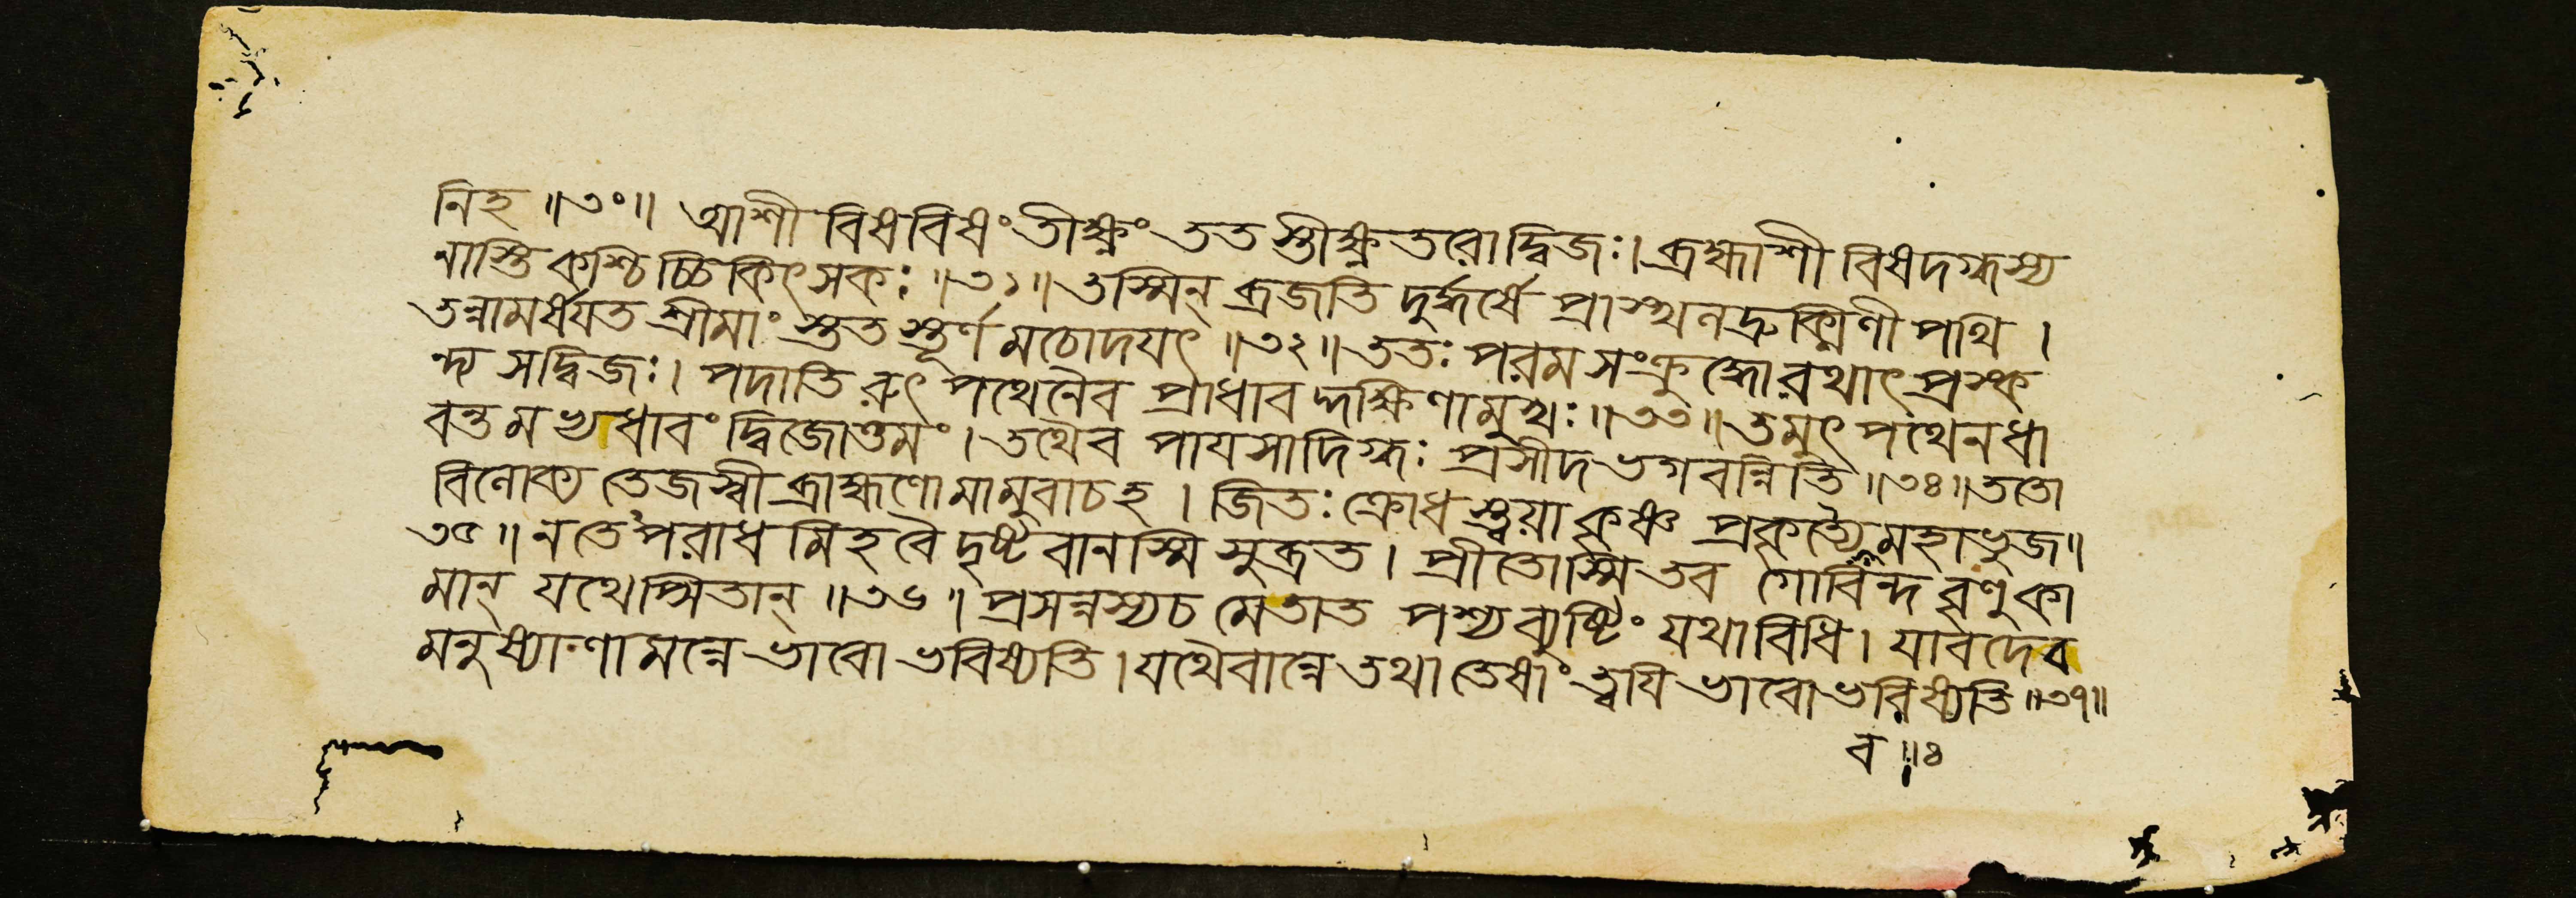 নিহ ॥৩০॥ আশীবিষবিষং তীক্ষ্ণং ততস্তীক্ষ্ণতরো দ্বিজঃ। ব্রহ্মাশীবিষদগ্ধস্য
নাস্তি কশ্চিচ্চিকিৎসকঃ ॥৩১॥ তস্মিন্ ব্রজতি দুর্দ্ধর্ষে প্রাস্খলদ্রুক্মিণী পথি ।
তন্নামর্ষযত শ্রীমাংস্ততস্তূর্ণমচোদযৎ ॥৩২॥ ততঃ পরমসংক্রুদ্ধো রথাৎ প্রস্ক
ন্দ্য স দ্বিজঃ। পদাতিরুৎপথেনৈব প্রাধাবদ্দক্ষিণামুখঃ ॥৩৩॥ তমুৎপথেন ধা
বন্তমন্বধাবং দ্বিজোত্তমং । তথৈব পাযসাদিগ্ধঃ প্রসীদ ভগবন্নিতি ॥৩৪॥ ততো
বিলোক্য তেজস্বী ব্রাহ্মণো মামুবাচ হ । জিতঃ ক্রোধস্ত্বয়া কৃষ্ণ প্রকৃত্যৈ মহাভুজ॥
৩৫॥ ন তেঽপরাধমিহ বৈ দৃষ্টবানস্মি সুব্রত। প্রীতোস্মি তব গোবিন্দ বৃণু কা
মান্ যথেপ্সিতান্ ॥৩৬॥ প্রসন্নস্য চ মে তাত পশ্য ব্যুষ্টিং যথাবিধি। যাবদেব
মনুষ্যাণামন্নে ভাবো ভবিষ্যতি। যথৈবান্নে তথা তেষাং ত্বযি ভাবো ভবিষ্যতি ॥৩৭॥
ব ॥৪